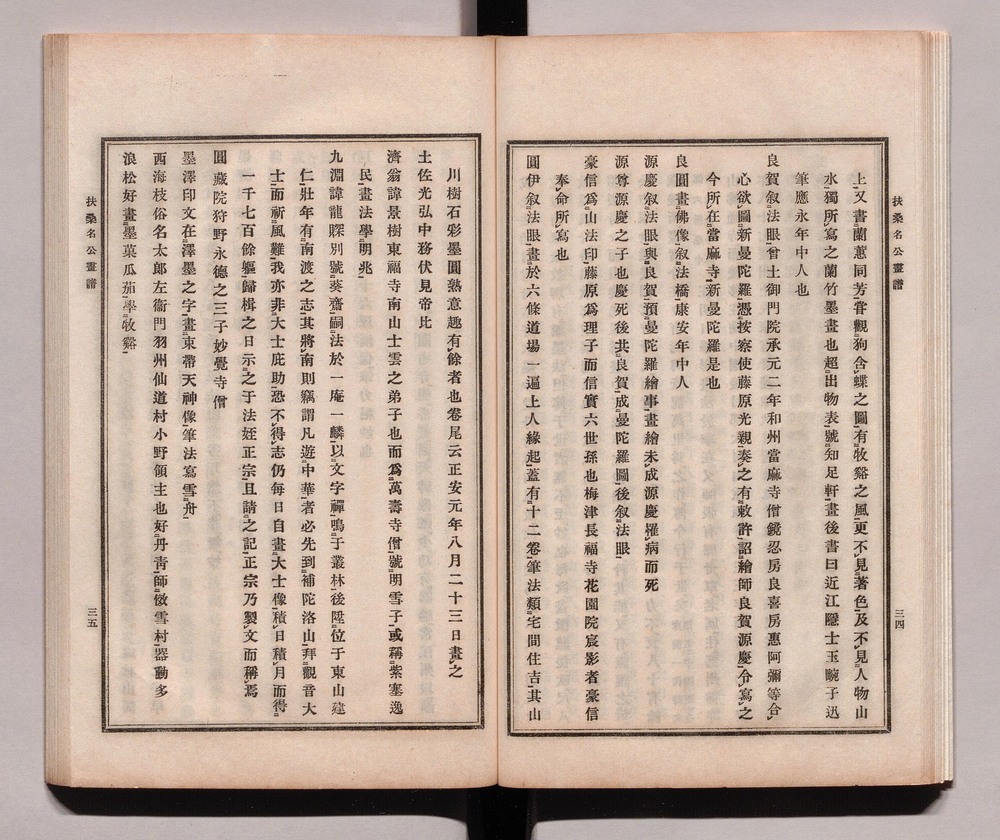 扶桑名公畫譜
三四
上又書蘭蕙同芳、嘗觀狗含蝶之圖、有牧谿之風、更不見著色、及不見人物山
水、獨所寫之蘭竹墨畫也超出物表號知足軒畫後書曰近江隱士玉畹子迅
筆應永年中人也
良賀叙法眼曾土御門院承元二年和州當麻寺僧鏡忍房良喜房惠阿彌等合
心欲圖新曼陀羅、憑按察使藤原光親奏之有敕許、詔繪師良賀源慶、令寫之
今所在當麻寺新曼陀羅是也
良圓畫佛像、叙法橋康安年中人
源慶叙法眼與良賀預曼陀羅繪事畫繪未成源慶罹病而死
源尊源慶之子也慶死後其良賀成曼陀羅圖後叙法眼
豪信爲山法印藤原爲理子而信實六世孫也梅津長福寺花園院宸影者豪信
奉命所寫也
圓伊叙法眼畫於六條道場一遍上人緣起、蓋有十二卷筆法類宅間住吉、其山
川樹石彩墨圓熟意趣有餘者也卷尾云正安元年八月二十三日畫之
土佐光弘中務伏見帝比
濟翁諱景樹東福寺南山士雲之弟子也而爲萬壽寺僧號明雪子、或稱紫塞逸
民畫法學明兆
九淵諱龍賝別號葵齋嗣法於一庵一麟以文字禪鳴于叢林、後陞位于東山建
仁、壯年有南渡之志、其將南則竊謂凡遊中華者必先到補陀洛山、拜觀音大
士、而祈風難、我亦非大士庇助、恐不得志仍每日自畫大士像、積日積月而得
一千七百餘軀、歸楫之日示之于法姪正宗、且請之記、正宗乃製文而稱焉
圓藏院狩野永德之三子妙覺寺僧
墨澤印文在澤墨之字、畫束帶天神像筆法寫雪舟
西海枝俗名太郎左衞門羽州仙道村小野領主也好丹靑師倣雪村、器動多
浪松好畫墨菓瓜茄、學牧谿
扶桑名公畫譜
三五